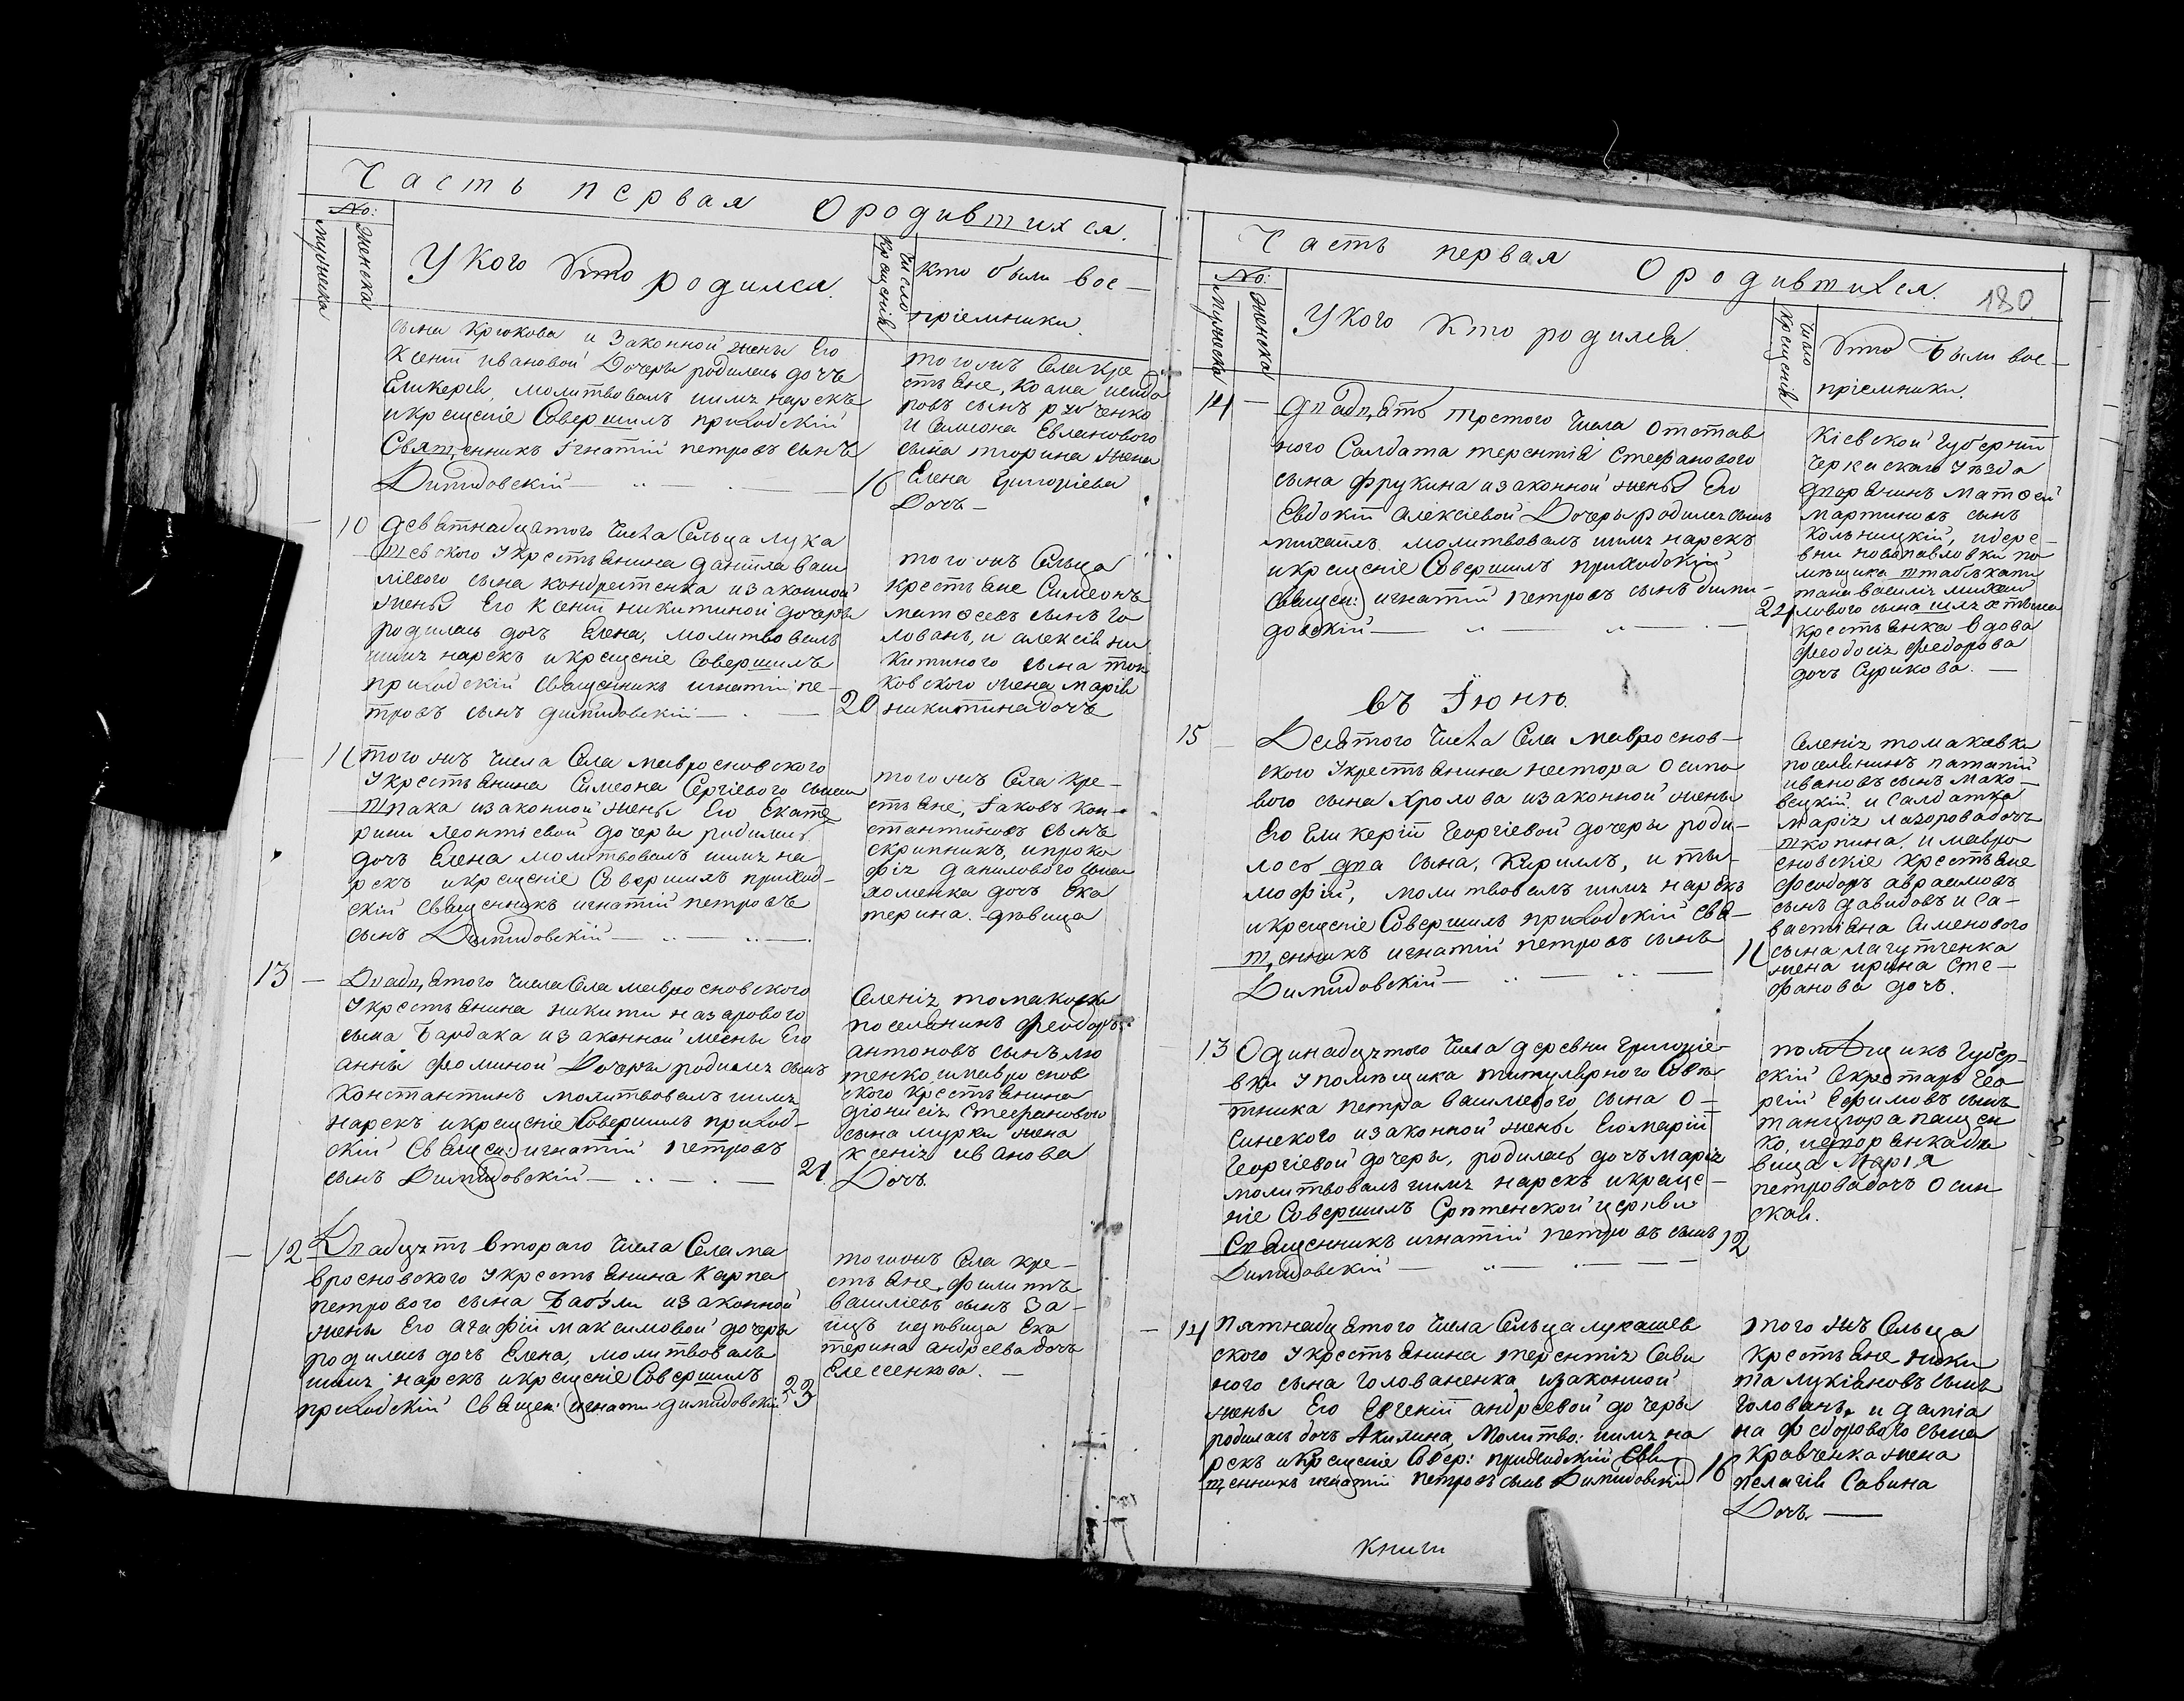 Часть первая Ородившихся.
No:
мужеска
женска
У кого кто родился.
Число
крещенія
кто были вос-
пріемники.
сына Крюкова и Законной жены Его
Ксеніи ивановой Дочеры родилась дочъ
Гликерія, молитвовалъ имя нарекъ
икрещеніе Совершилъ приходскій
Священникъ Игнатій петровъ сынъ
Димидовскій
16
тогожъ Села кре
стьяне, козма исидо
ровъ сынъ
и Симеона Евланового
сына жена
Елена Григоріева
Дочъ
10
девятнадцатого Числа Сельца лука
шевского Укрестьянина даніила васи
ліевого сына кондратенка изаконной
жены Его Ксеніи никитиной дочеры
родилась дочъ Елена, молитвовалъ
имя нарекъ икрещеніе Совершилъ
приходскій священникъ игнатій пе-
тровъ сынъ димидовскій
20
тогожъ Сельца
крестьяне Симеонъ
матфеевъ сынъ Го
лованъ, и алексія ни
китиного сына
ковского жена марія
никитина дочъ
11
тогожъ Числа Села мавросновского
Укрестьянина Симеона Сергіевого сына
Шпака изаконной жены Его Екате
рини леонтіевой дочеры родилась
дочъ Елена молитвовалъ имя на
рекъ икрещеніе Совершилъ приход-
скій священникъ игнатій петровъ
сынъ Димидовскій
тогожъ Села кре-
стьяне, Iаковъ кон-
стантиновъ сынъ
скрипникъ, ипроко
фія данилового сына
хоменка дочъ Ека
терина. дѣвица
13
Двадцятого Числа Села мавросновского
Укрестьянина никити назарового
сына Бардака изаконной жены Его
анны фоминой Дочеры родился сынъ
Константинъ молитвовалъ имя
нарекъ икрещеніе Совершилъ приход-
скій Священ: игнатій петровъ
сынъ Димидовскій
21
Селенія томаковки
поселянинъ феодоръ
антоновъ сынъ лю
тенко, имавроснов
ского крестьянина
діонисія Стефанового
сына мурки жена
ксенія иванова
Дочъ
12
Двадцять втораго Числа Села ма
вросновского Укрестьянина Карпа
петрового сына изаконной
жены Его агафіи максимовой дочеры
родилась дочъ Елена, молитвовалъ
имя нарекъ икрещеніе Совершилъ
приходскій Священ: игнати димидовскій
23
тогожъ Села кре-
стьяне, филиппъ
василіевъ сынъ За-
яцъ идѣвица Ека
терина андреева дочъ
Часть первая Ородившихся.
180
No:
Мужеска
женска
У кого Кто родился.
Число
Крещенія
кто Были вос-
пріемники.
14
двадцять третого Числа отстав
ного Салдата терентія Стефанового
сына фрукина изаконной жены Его
Евдокіи Алексіевой Дочеры родился сынъ
михаилъ молитвовалъ имя нарекъ
икрещеніе Совершилъ приходскій
Священ: игнатій петровъ сынъ дими-
довскій
24
Кіевской Губерніи
Черкаского Уѣзда
дворянинъ матфей
мартиновъ сынъ
Кольницкій, идере-
вни новопавловки по
мѣщика штабскапи
тана василія михаи
лового сына
крестьянка вдова
феодосія федорова
дочъ Сурикова.
въ Iюнѣ.
15
Десятого Числа Села мавроснов-
ского Укрестьянина нестора Осипо
вого сына Хролова изаконной жены
Его Гликеріи Георгіевой дочеры роди-
лось два сына, Кирилъ, и ти-
мофій, молитвовалъ имя нарекъ
икрещеніе Совершилъ приходскій Свя-
щенникъ игнатій петровъ сынъ
Димидовскій
11
Селенія томаковки
поселянинъ патапій
ивановъ сынъ мако-
вецкій, и Салдатка
марія лазорова дочъ
имавро
сновскіе крестьяне
феодоръ авраамовъ
сынъ давидовъ и са-
вастіяна Сименового
сына лагутченка
жена ирина Сте-
фанова дочъ.
13
Одинадцятого Числа деревни григоріе-
вки Упомѣщика титулярного Совѣ
тника петра василіевого сына О-
синского изаконной жены Его маріи
Георгіевой дочеры, родилась дочъ марія
молитвовалъ имя нарекъ икреще-
ніе Совершилъ Срѣтенской церкви
Священникъ игнатій петровъ сынъ
Димидовскій
12
помѣщикъ Губер-
скій Секретарь Гео
ргій Ефимовъ сынъ
пащен
ко, идворянка дѣ
вица Марія
петрова дочъ Осин
ская.
14
пятнадцятого Числа Сельца лукашев
ского Укрестьянина терентія Сави
ного сына Голованенка изаконной
жены Его Евгеніи андреевой дочеры
родилась дочъ Акилина, Молитво: имя на
рекъ икрещеніе Совер: приходскій Свя
щенникъ игнатій петровъ сынъ Димидовскій
16
того жъ Сельца
Крестьяне ники
та лукіяновъ сынъ
Голованъ, и даміа
на федорового сына
Кравченка жена
пелагія Савина
Дочъ.
книги